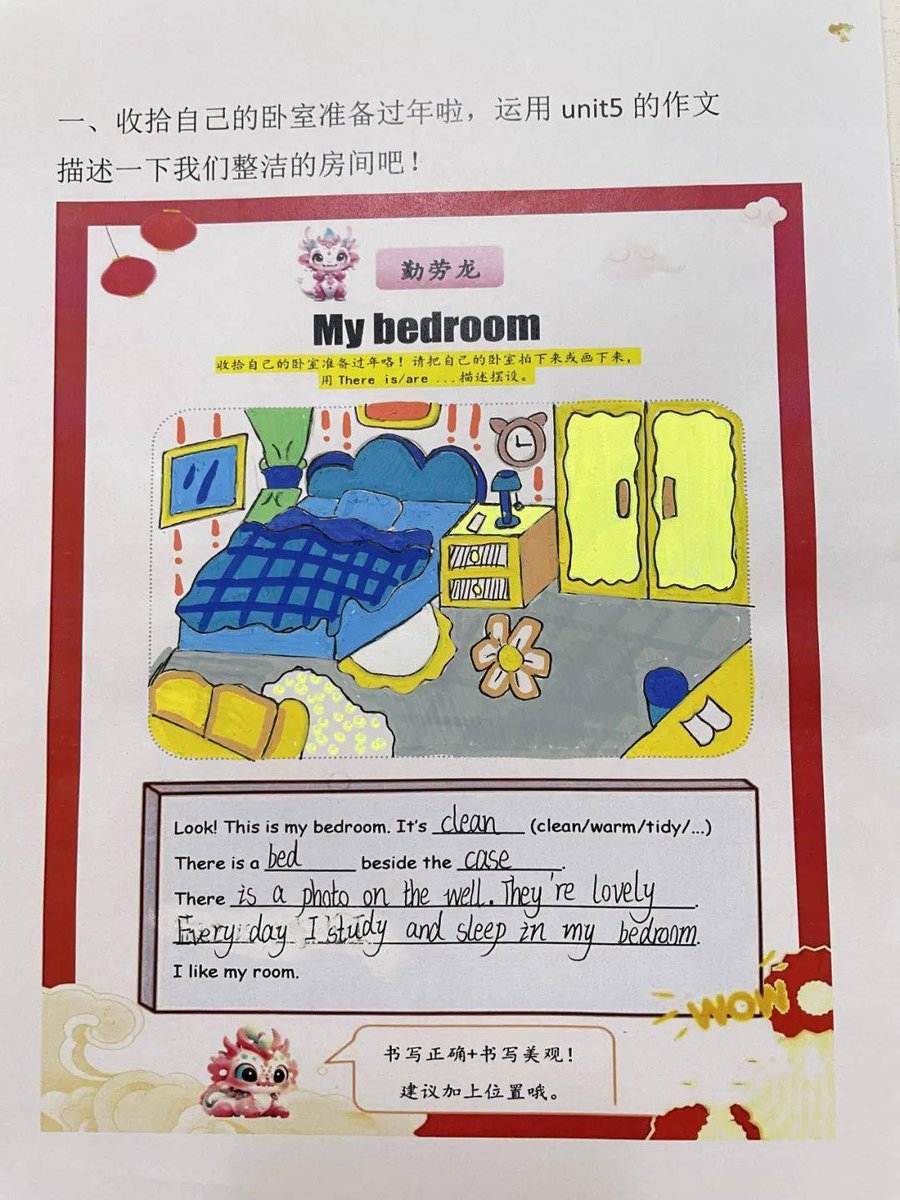 一、收拾自己的卧室准备过年啦，运用 unit5 的作文
描述一下我们整洁的房间吧！
勤劳龙
My bedroom
收拾自己的卧室准备过年咯！请把自己的卧室拍下来或画下来，
用 There is/are ...描述摆设。
Look! This is my bedroom. It's clean (clean/warm/tidy/...)
There is a bed beside the case.
There is a photo on the well. They're lovely.
Every day I study and sleep in my bedroom.
I like my room.
WOW
书写正确+书写美观！
建议加上位置哦。